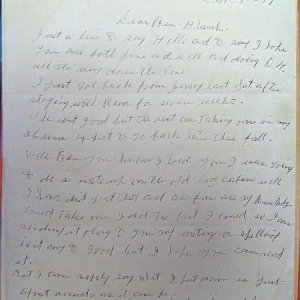 Dear Ben Blanch
Just a line to say Hello and to say I hope
you are both fine and well and doing O.K.
all the way down the line
I just got back from Jersey last Sat after
staying with Rene for seven weeks.
He isnt good but the rest are taking me on my
4 to go back later this fall.
Well Ben you know I told you I was going
to do a write up on the old log cabin well
I have did just that and as far as my knowledge
could take me I did the best I could so I am
sending it along to you my writing or spelling
isnt any to Good but I hope you can read
it.
But I can safely say what I put down is just
about accurate as it can